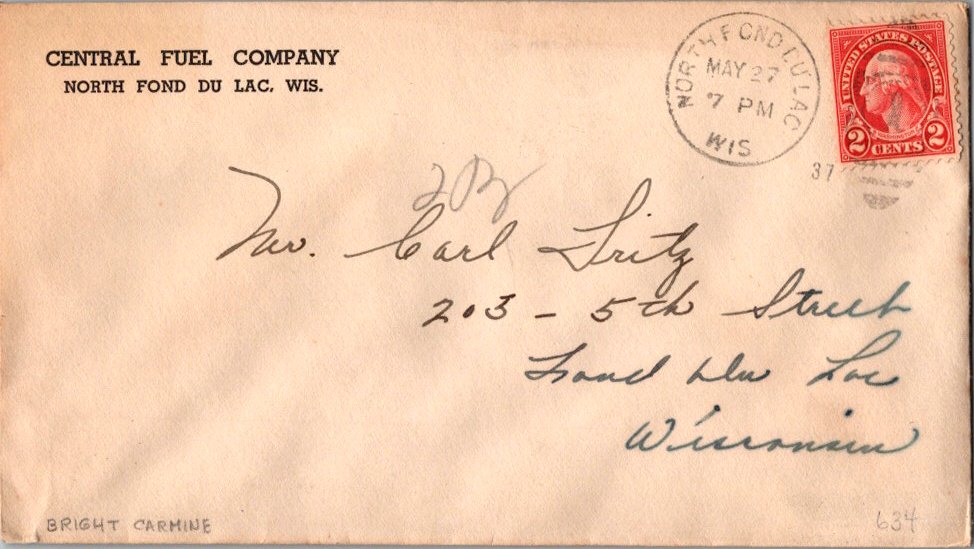 CENTRAL FUEL COMPANY
NORTH FOND DU LAC, WIS.
NORTH FOND DU LAC
MAY 27
7 PM
WIS
37
UNITED STATES POSTAGE
2 CENTS 2
Mr. Carl Fritz
203 - 5th Street
Fond du Lac
Wisconsin
BRIGHT CARMINE
634